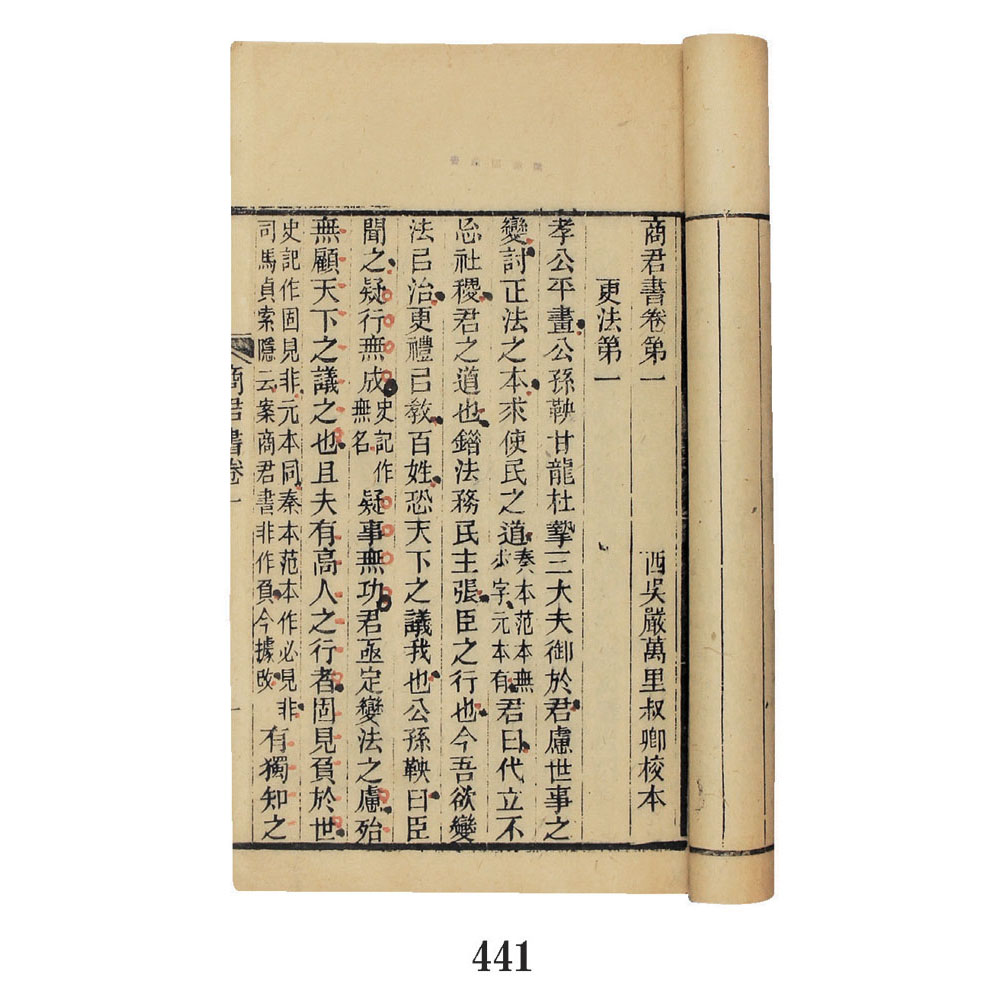 商君書卷第一　西吳嚴萬里叔卿校本
更法第一
孝公平畫公孫鞅甘龍杜摯三大夫御於君慮世事之
變討正法之本求使民之道秦本范本無求字元本有君曰代立不
忘社稷君之道也錯法務民主張臣之行也今吾欲變
法㠯治更禮㠯教百姓恐天下之議我也公孫鞅曰臣
聞之疑行無成史記作無名疑事無功君亟定變法之慮殆
無顧天下之議之也且夫有高人之行者固見負於世
史記作固見非元本同秦本范本作必見非司馬貞索隱云案商君書非作負今據改有獨知之
商君書卷一
一
441